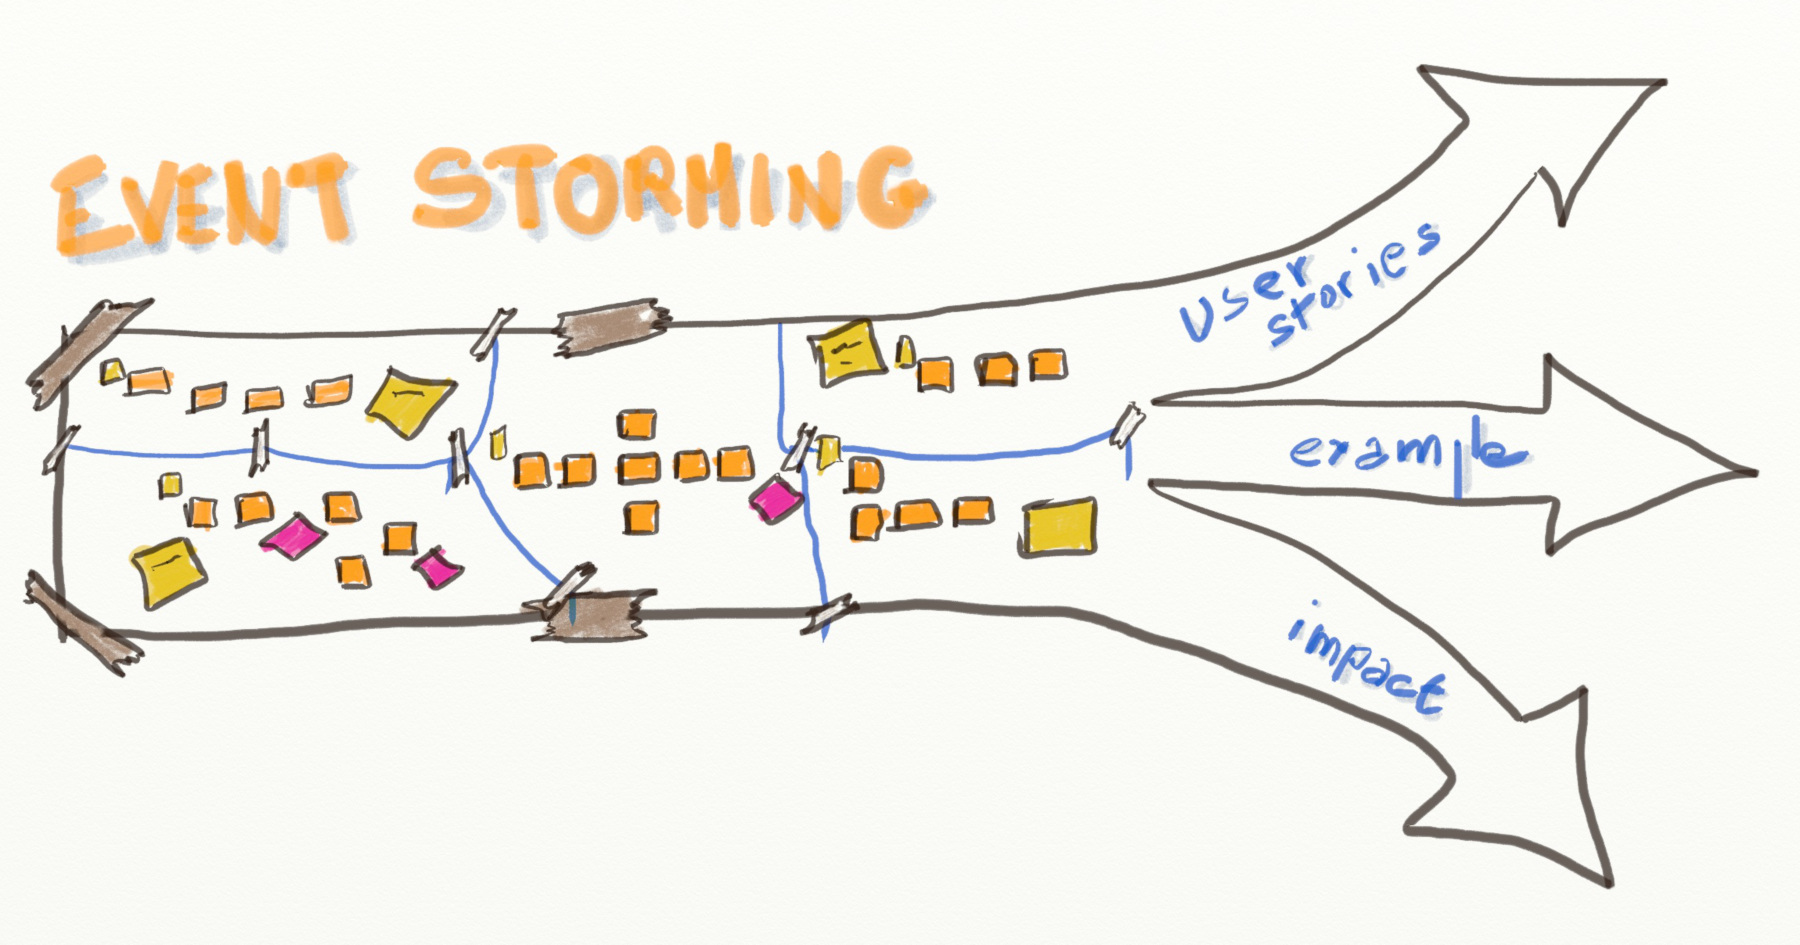 EVENT STORMING
user
stories
example
impact